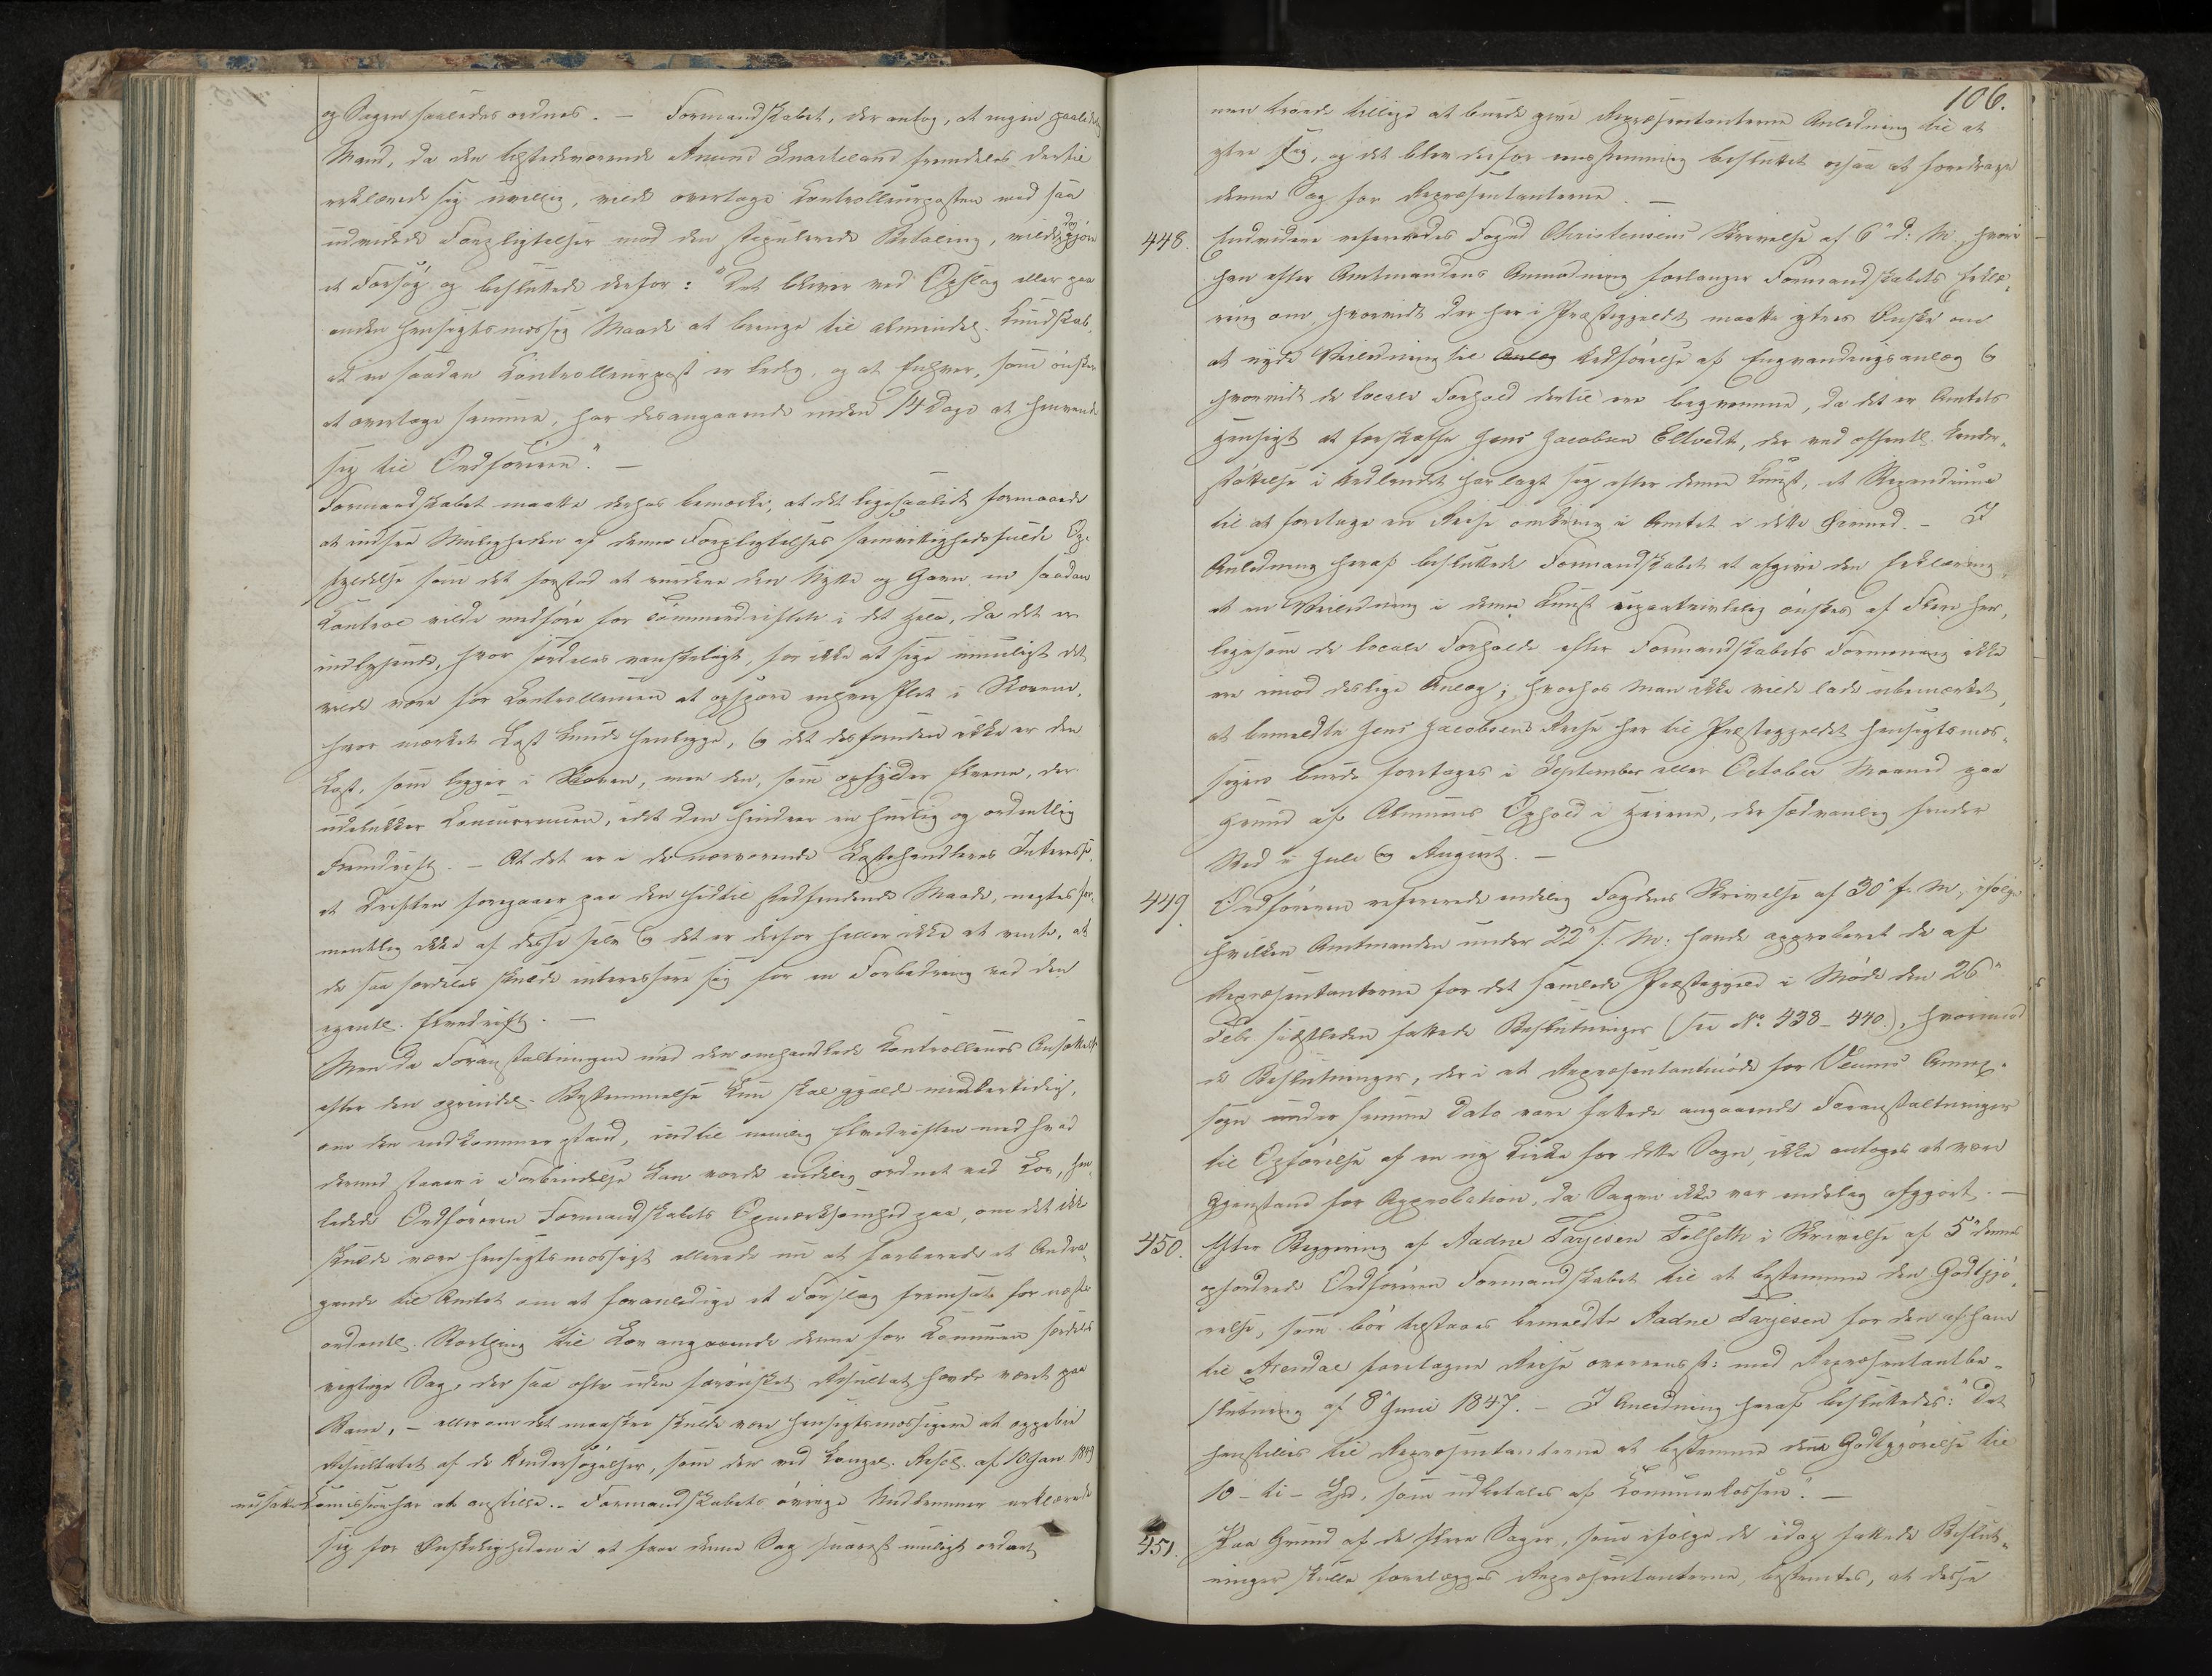 og Sagen saaledes ordnes. — Formandskabet, der antog, at ingen paalidelig
Mand, da den tilstedeværende Amund Gnarteland fremdeles dertil
erklærede sig uvillig, vilde overtage Kontrolleurposten med saa
udvidede Forpligtelser mod den stipulerede Betaling, vilde dog gjøre
et Forsøg og besluttede derfor: "Det bliver ved Opslag eller paa
anden hensigtsmæssig Maade at bringe til almindel. Kundskab,
at en saadan Kontrolleurpost er ledig, og at Enhver, som ønsker
at overtage samme, har desangaaende inden 14 Dage at henvende
sig til Ordføreren." —
Formandskabet maatte derhos bemærke, at det ligesaalidt formaaede
at indsee Muligheden af denne Forpligtelses samvittighedsfulde Op-
fyldelse som det forstod at vurdere den Nytte og Gavn en saadan
Kontrol vilde medføre for Tømmerdriften i det Hele, da det er
indlysende, hvor særdeles vanskeligt, for ikke at sige umuligt det
vilde være for Kontrolleuren at opspore enhver Plet i Skovene,
hvor mærket Last kunde henligge, og det desforuden ikke er den
Last, som ligger i Skoven, men den, som opfylder Elvene, der
udelukker Concurrencen, idet den hindrer en hurtig og ordentlig
Fremdrift. — At det er i de nærværende Lasthandleres Interesse,
at Driften foregaaer paa den hidtil stedfindende Maade, negtes for-
mentlig ikke af disse selv og det er derfor heller ikke at vente, at
de saa særdeles skulde interessere sig for en Forbedring ved den
egentl. Elvedrift. —
Men da Foranstaltningen med den omhandlede Kontrolleurs Ansættelse
efter den oprindel. Bestemmelse kun skal gjælde midlertidigt,
om den endkommer istand, indtil nemlig Elvedriften med hvad
dermed staaer i Forbindelse kan vorde endelig ordnet ved Lov, hen-
ledede Ordføreren Formandskabets Opmærksomhed paa, om det ikke
skulde være hensigtsmæssigt allerede nu at forberede et Andra-
gende til Amtet om at foranledige et Forslag fremsat for næste
ordentl. Storthing til Lov angaaende denne for Kommunen særdeles
vigtige Sag, der saa ofte uden forønsket Resultat havde været paa
Bane, — eller om det maaskee skulde være hensigtsmæssigere at oppebie
Resultatet af de Undersøgelser, som den ved Kongel. Resol. af 10 Jan 1849
nedsatte Comission har at anstille. — Formandskabets øvrige Medlemmer erklærede
sig for Ønskeligheden i at faae denne Sag snarest muligt ordnet,
106.
men troede tillige at burde give Repræsentanterne Anledning til at
yttre sig, og det blev derfor eenstemmig besluttet ogsaa at foredrage
denne Sag for Repræsentanterne. —
448. Endvidere refereredes Foged Christensens Skrivelse af 6te d: M., hvori
han efter Amtmandens Anmodning forlanger Formandskabets Erklæ-
ring om, hvorvidt der her i Præstegjeldet maatte yttres Ønske om
at nyde Veiledning til Anlæg Udførelse af Engvandingsanlæg og
hvorvidt de locale Forhold dertil ere beqvemme, da det er Amtets
Hensigt at forskaffe Jens Jacobsen Eltvedt, der ved offentl. Under-
støttelse i Udlandet har lagt sig efter denne Kunst, et Stipendium
til at foretage en Reise omkring i Amtet i dette Øiemed. — I
Anledning heraf besluttede Formandskabet at afgive den Erklæring,
at en Veiledning i denne Kunst upaatvivlelig ønskes af Flere her,
ligesom de locale Forholde efter Formandskabets Formening ikke
ere imod deslige Anlæg; hvorhos man ikke vilde lade ubemærket,
at bemeldte Jens Jacobsens Reise her til Præstegjeldet hensigtsmæs-
sigen burde foretages i September eller October Maaned paa
Grund af Almuens Ophold i Heiene, der sædvanlig finder
Sted i Juli og August. —
449. Ordføreren refererede endelig Fogdens Skrivelse af 30te f. M., ifølge
hvilken Amtmanden under 22de s. M: havde approberet de af
Repræsentanterne for det samlede Præstegjeld i Møde den 26de
Febr sidstleden fattede Beslutninger (see No. 438-440.), hvorimod
de Beslutninger, der i et Repræsentantmøde for Veums Annex-
sogn under samme Dato vare fattede angaaende Foranstaltninger
til Opførelse af en ny Kirke for dette Sogn, ikke antoges at være
Gjenstand for Approbation, da Sagen ikke var endelig afgjort. —
450. Efter Begjæring af Aadne Tarjesen Folseth i Skrivelse af 5te dennes
opfordrede Ordføreren Formandskabet til at bestemme den Godtgjø-
relse, som bør tilstaaes bemeldte Aadne Tarjesen for den af ham
til Arendal foretagne Reise overeensst: med Repræsentantbe-
slutning af 8de Juni 1847. — I Anledning heraf besluttedes: "Det
henstilles til Repræsentanterne at bestemme denne Godtgjørelse til
10 — ti — Spd., som udbetales af Kommunekassen." —
451. Paa Grund af de flere Sager, som ifølge de idag fattede Beslut-
ninger skulle forelægges Repræsentanterne, bestemtes, at disse